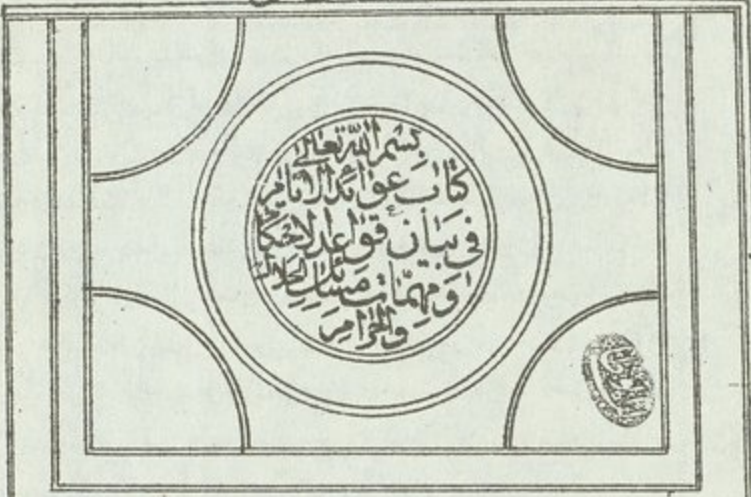 بسم الله تعالى
كتاب عوائد الايام
في بيان قواعد الاحكام
ومهمات مسائل الحلال
والحرام